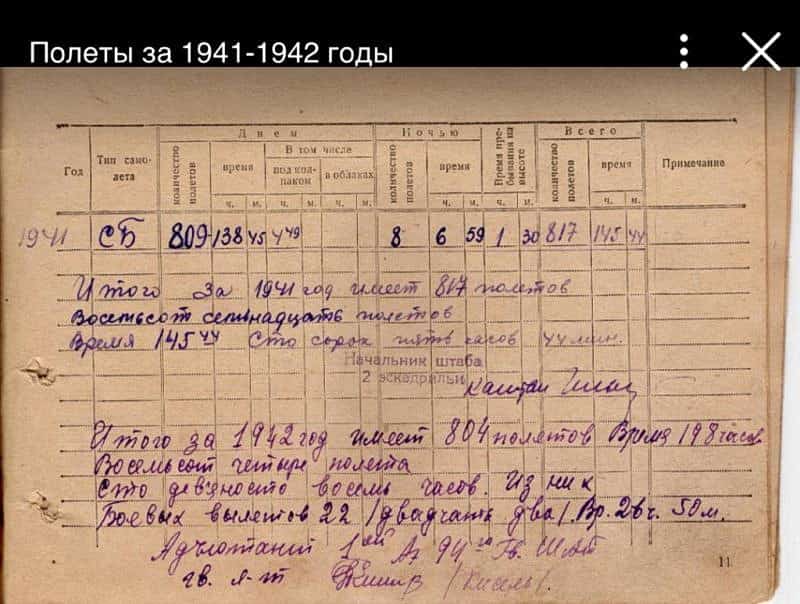 Полеты за 1941-1942 годы
Год
Тип само-
лета
Днем
количество
полетов
время
В том числе
под кол-
паком
в облаках
Ночью
количество
полетов
время
Время пре-
бывания на
высоте
Всего
количество
полетов
время
Примечание
ч. м. ч. м. ч. м. ч. м. ч. м. ч. м.
1941 СБ 809 138 45 4 49 8 6 59 1 30 817 145 44
Итого за 1941 год имеет 817 полетов
Восемьсот семьнадцать полетов
Время 145 44 Сто сорок пять часов 44 мин.
Начальник штаба
2 эскадрильи
капитан
Итого за 1942 год имеет 804 полетов Время 198 часов
Восемьсот четыре полета
Сто девяносто восемь часов. Из них
Боевых вылетов 22 /двадцать два/. Вр. 26 ч. 50 м.
Адъютант 1ой Аэ 94го Гв. ШАП
гв. л-т /Киселев/.
11